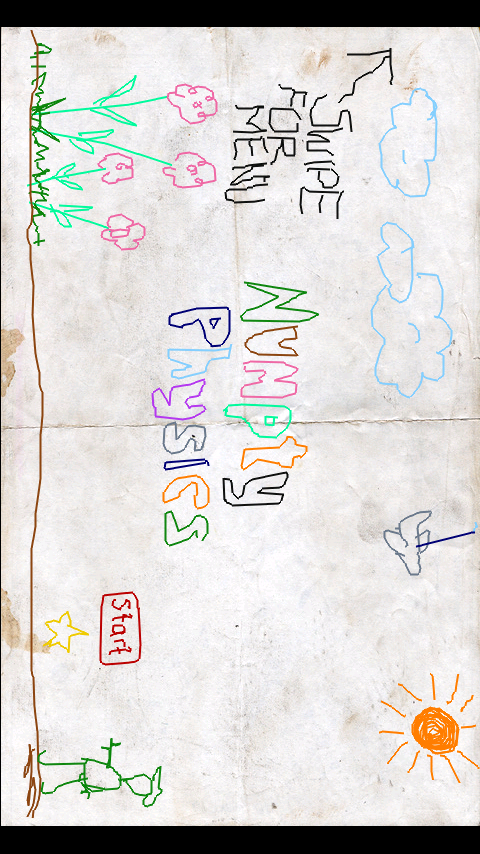 SWIPE
FOR
MENU
NUMPty
PhysIcs
Start